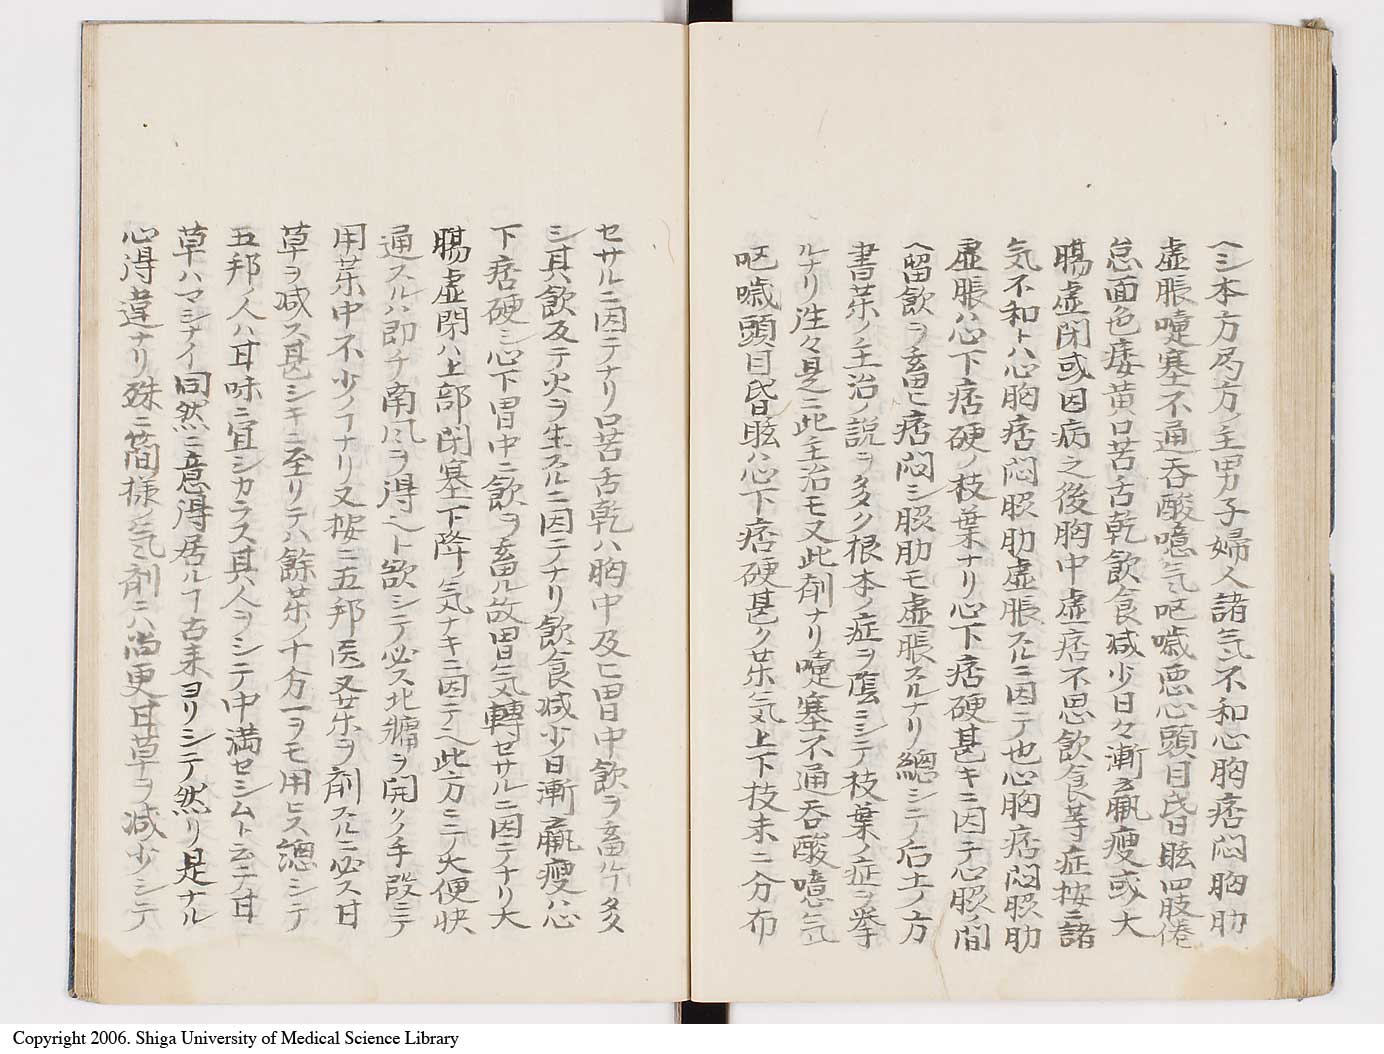 ヘシ本方局方ノ主男子婦人諸気不和心胸痞悶胸肋
虚脹噎塞不通呑酸噫気呕噦悪心頭目昏眩四肢倦
怠面色痿黄口苦舌乾飲食减少日々漸羸瘦或大
腸虚閉或因病之後胸中虚痞不思飲食等症按ニ諸
気不和トハ心胸痞悶腹肋虚脹スルニ因テ也心胸痞悶腹肋
虚脹ハ心下痞硬ノ枝葉ナリ心下痞硬甚キニ因テ心腹ノ間
ヘ留飲ヲ畜ヒ痞悶シ腹肋モ虚脹スルナリ總シテ后土ノ方
書某ノ主治ノ説ヲ多ク根本ノ症ヲ蔭ニシテ枝葉ノ症ヲ挙
ルナリ往々是ニ此主治モ又此剤ナリ噎塞不通呑酸噫気
呕噦頭目昏眩ハ心下痞硬甚ク某気上下枝未ニ分布
セサルニ因テナリ口苦舌乾ハ胸中及ヒ胃中飲ヲ畜ルヿ多
シ其飲及テ火ヲ生スルニ因テナリ飲食减少日漸羸瘦ハ心
下痞硬シ心下胃中ニ飲ヲ畜ル故胃気轉セサルニ因テナリ大
腸虚閉ハ上部閉塞下降ノ気ナキニ因テ也此方ニテ大便快
通スルハ即チ南風ヲ得ント欲シテ必ス北牖ヲ開クノ手段ニテ
用某中不少ノヿナリ又按ニ五邦医又某ヲ剤スルニ必ス甘
草ヲ减ス甚シキニ至リテハ餘某ノ十分一ヲモ用ヒス總シテ
五邦人ハ甘味ニ宜シカラス其人ヲシテ中満セシムト云テ甘
草ハマジナイ同然ニ意得居ルヿ古来ヨリシテ然リ是ナル
心得違ナリ殊ニ箇様ノ気剤ニハ尚更甘草ヲ减少シテ
Copyright 2006. Shiga University of Medical Science Library